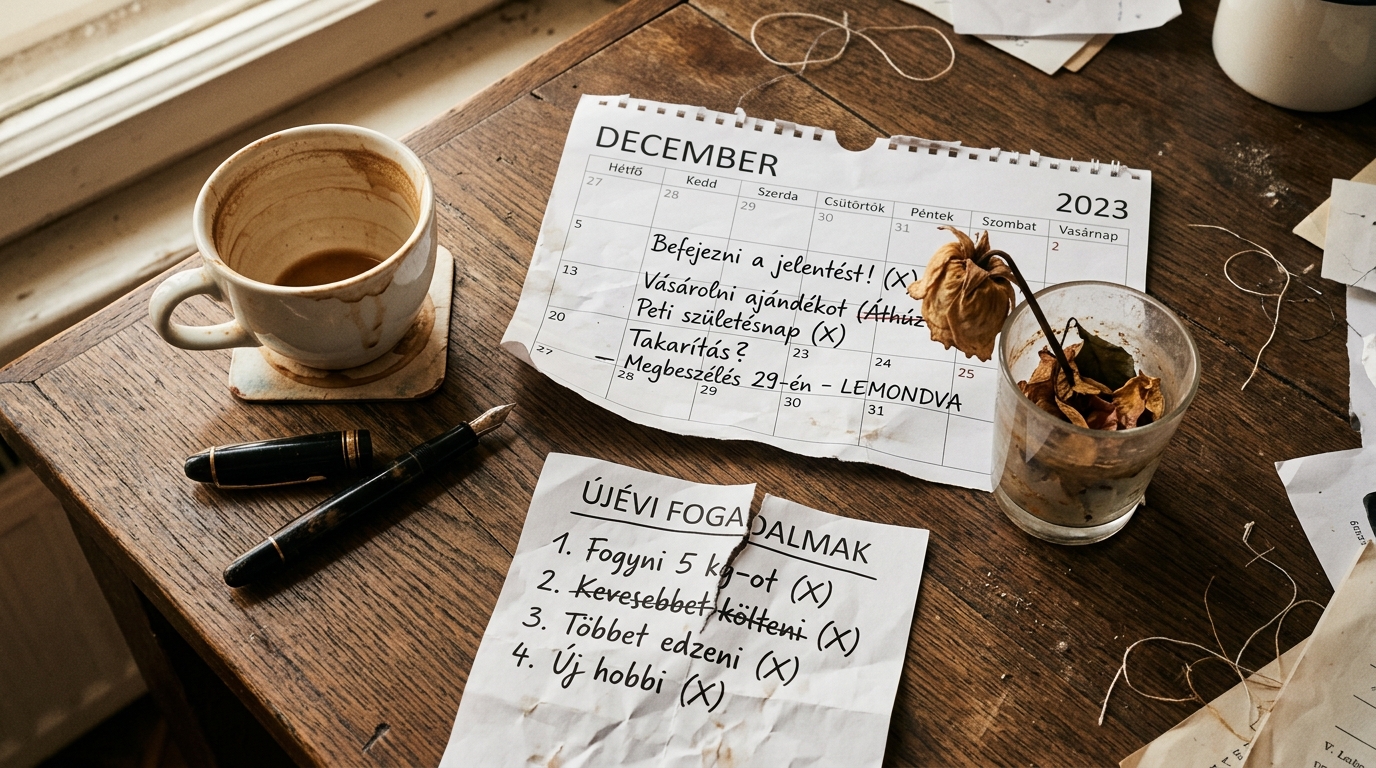 DECEMBER
2023
Hétfő Kedd Szerda Csütörtök Péntek Szombat Vasárnap
27 28 29 30 31 2
5
Befejezni a jelentést! (X)
13
Vásárolni ajándékot (Áthúz
Peti születésnap (X)
20
Takarítás? 23 24 25
27
– Megbeszélés 29-én – LEMONDVA
28 29 30 31
ÚJÉVI FOGADALMAK
1. Fogyni 5 kg-ot (X)
2. Kevesebbet költeni (X)
3. Többet edzeni (X)
4. Új hobbi (X)